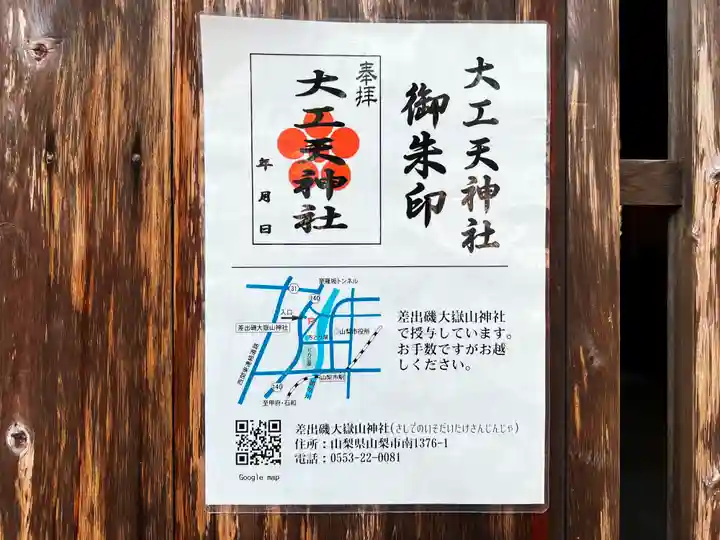 大工天神社
御朱印
奉拝
大工天神社
年 月 日
至雁坂トンネル
31
140
入口
差出磯大嶽山神社
山梨市役所
山梨市駅
140
至甲府・石和
差出磯大嶽山神社
で授与しています。
お手数ですがお越
しください。
差出磯大嶽山神社(さしでのいそだいたけさんじんじゃ)
住所：山梨県山梨市南1376-1
電話：0553-22-0081
Google map